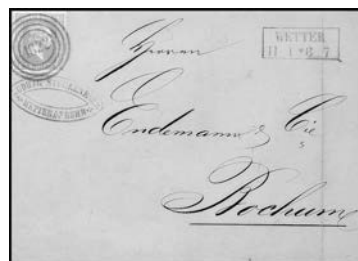 WETTER
Herren
Endemann & Cie
Bochum